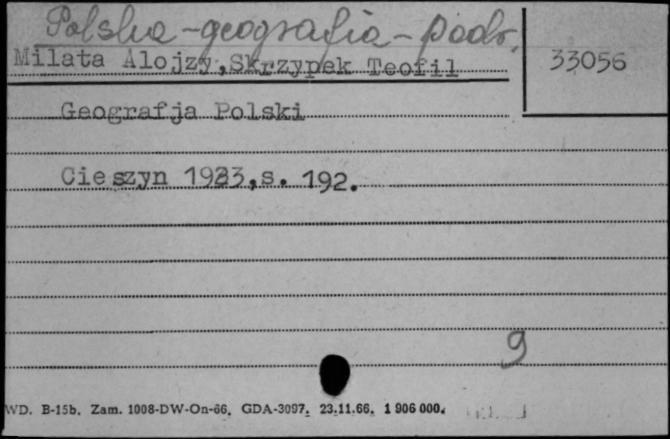 Polska - geografia - podr.
Milata Alojzy, Skrzypek Teofil
33056
Geografja Polski
Cieszyn 1923, s. 192.
9
WD. B-15b. Zam. 1008-DW-On-66. GDA-3097. 23.11.66. 1 906 000.